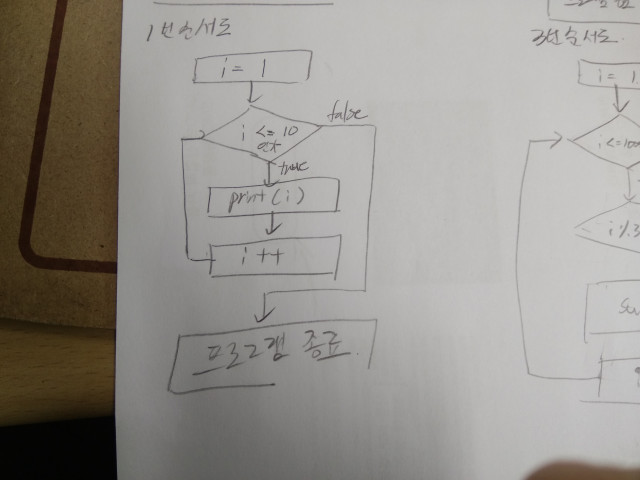 1번순서도
i = 1
i <= 10
false
true
print(i)
i ++
프로그램 종료.
3번순서도.
i = 1
i <= 100
i % 3